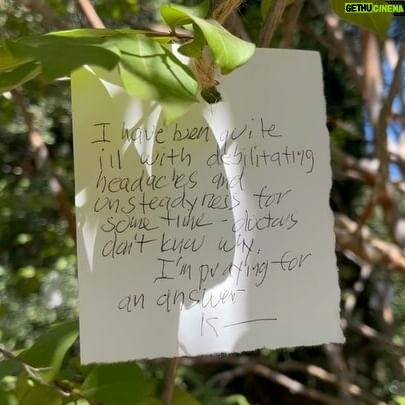 GETHUCINEMA
I have been quite
ill with debilitating
headaches and
unsteadyness for
some time - doctors
don't know why.
I'm praying for
an answer
K —